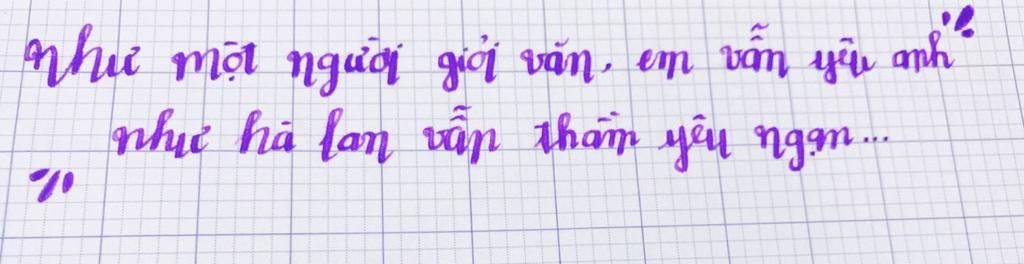 như một người giỏi văn, em vẫn yêu anh
như hà lan vẫn thầm yêu ngạn...